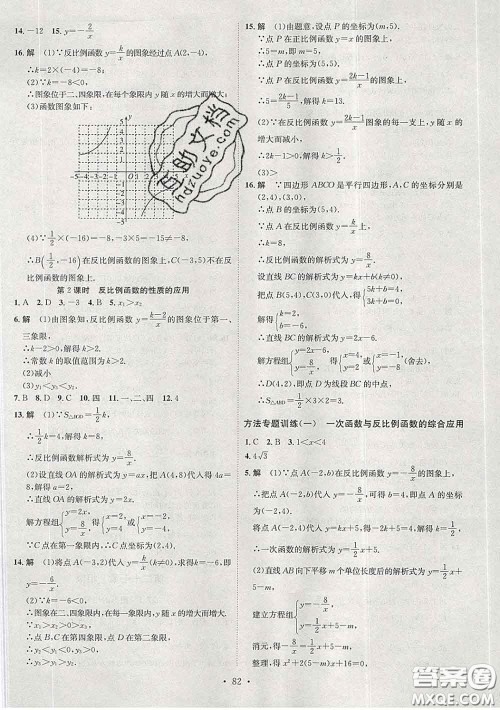 14. -12 15. y=-2/x
16. 解 (1)∵反比例函数 y=k/x 的图象经过点 A(2,-4),
∴k=2×(-4)=-8.
(2)∵k=-8<0,
∴图象位于二、四象限,在每个象限内,y 随 x 的增大而增大;
(3)函数图象如下:
(4)∵1/2×(-16)=-8,-3×5=-15≠-8,
∴点 B(1/2,-16)在反比例函数的图象上,点 C(-3,5)不在反比例函数的图象上.
第2课时 反比例函数的性质的应用
1. A 2. D 3. -3 4. B 5. x₁>x₂
6. 解 (1)由图象知,反比例函数 y=(k-2)/x 的图象位于第一、三象限,
∴k-2>0,解得 k>2.
∴常数 k 的取值范围为 k>2.
(2)减小
(3)y₁<y₃<y₂
7. B 8. D 9. C 10. 四 11. 一、二、四 12. 4
13. 解 (1)∵S△BOD=1/2k,
∴1/2k=4,解得 k=8.
∴反比例函数解析式为 y=8/x.
(2)设直线 OA 的解析式为 y=ax,把 A(4,8)代入得 4a=8,解得 a=2,
∴直线 OA 的解析式为 y=2x.
解方程组{y=2x, y=8/x 得{x=2, y=4 或{x=-2, y=-4.
∵C 点在第一象限内,∴C 点坐标为(2,4).
14. 解 (1)将点 A(-3,2)代入 y=k/x(k≠0),得 k=-6,即
y=-6/x.
(2)∵k=-6<0,
∴图象在二、四象限,在每个象限内,y 随 x 的增大而增大.
∴点 B、点 C 在第四象限,点 D 在第二象限.
∴y₁<0,y₂<0,y₃>0.
∵x₁>x₂,∴y₂<y₁<y₃.
15. 解 (1)由题意,设点 P 的坐标为(m,5).
∵点 P 在正比例函数 y=x 的图象上,
∴5=m,即 m=5,∴点 P 的坐标为(5,5).
∵点 P 在反比例函数 y=(2k-1)/x 的图象上,
∴5=(2k-1)/5,解得 k=13.
(2)∵在反比例函数 y=(2k-1)/x 图象的每一支上,y 随 x 的增大而减小,
∴2k-1>0,解得 k>1/2.
(3)>
16. 解 ∵四边形 ABCO 是平行四边形,A,C 的坐标分别是(2,4),(3,0),
∴点 B 的坐标为(5,4).
把点 A(2,4)代入反比例函数解析式 y=k/x 得
∴k=8,
∴反比例函数的解析式为 y=8/x.
设直线 BC 的解析式为 y=kx+b(k≠0),
把点 B(5,4),C(3,0)代入 y=kx+b 得{5k+b=4, 3k+b=0
解得{k=2, b=-6.
∴直线 BC 的解析式为 y=2x-6.
解方程组{y=2x-6, y=8/x 得{x=4, y=2 或{x=-1, y=-8(舍去),
∴点 D(4,2),即点 D 的坐标为(4,2).
方法专题训练(一) 一次函数与反比例函数的综合应用
1. C 2. B 3. 1<x<4
4. 4√3
5. 解 (1)∵点 A(-2,b)在反比例函数 y=-8/x 的图象上,
∴b=-8/-2=4,即点 A 的坐标为(-2,4).
将点 A(-2,4)代入 y=kx+5,得 4=-2k+5,解得 k=1/2,
∴一次函数的解析式为 y=1/2x+5.
(2)直线 AB 向下平移 m 个单位长度后的解析式为 y=1/2x+5-m,
建立方程组{y=-8/x, y=1/2x+5-m.
消元,得-8/x=1/2x+5-m,
整理,得 x²+2(5-m)x+16=0.
82
互助文档
hdzuoye.com
答案圈
MXQE.COM